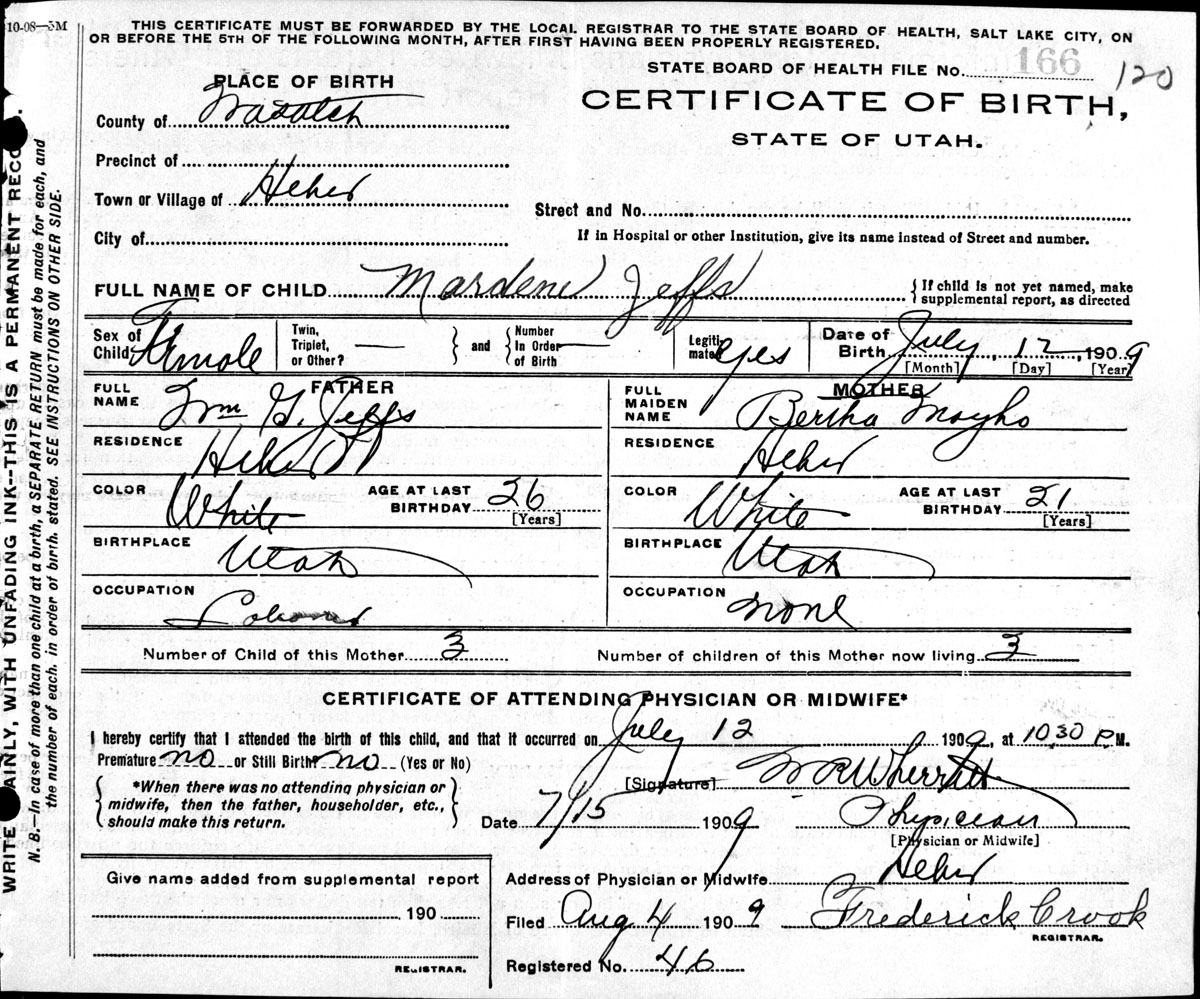 10-08—5M
THIS CERTIFICATE MUST BE FORWARDED BY THE LOCAL REGISTRAR TO THE STATE BOARD OF HEALTH, SALT LAKE CITY, ON
OR BEFORE THE 5TH OF THE FOLLOWING MONTH, AFTER FIRST HAVING BEEN PROPERLY REGISTERED.
STATE BOARD OF HEALTH FILE No. 166 120
PLACE OF BIRTH
CERTIFICATE OF BIRTH,
STATE OF UTAH.
County of Wasatch
Precinct of
Town or Village of Heber
Street and No.
City of
If in Hospital or other Institution, give its name instead of Street and number.
FULL NAME OF CHILD Mardene Jeffs { If child is not yet named, make
supplemental report, as directed
Sex of Child Female
Twin, Triplet, or Other? —
and
Number In Order of Birth —
Legitimate yes
Date of Birth July 12, 1909
[Month] [Day] [Year]
FATHER
FULL NAME Wm G. Jeffs
MOTHER
FULL MAIDEN NAME Bertha
RESIDENCE Heber
RESIDENCE Heber
COLOR White AGE AT LAST BIRTHDAY 26 [Years]
COLOR White AGE AT LAST BIRTHDAY 21 [Years]
BIRTHPLACE Utah
BIRTHPLACE Utah
OCCUPATION
OCCUPATION none
Number of Child of this Mother 3
Number of children of this Mother now living 3
CERTIFICATE OF ATTENDING PHYSICIAN OR MIDWIFE*
I hereby certify that I attended the birth of this child, and that it occurred on July 12 1909, at 10.30 P.M.
Premature no or Still Birth no (Yes or No)
*When there was no attending physician or
midwife, then the father, householder, etc.,
should make this return.
[Signature] Wherritt
Date 7/15 1909 Physician
[Physician or Midwife]
Give name added from supplemental report
190
REGISTRAR.
Address of Physician or Midwife Heber
Filed Aug 4 1909 Frederick Crook
REGISTRAR.
Registered No. 46
WRITE AINLY, WITH UNFADING INK--THIS IS A PERMANENT RECO
N. B.—In case of more than one child at a birth, a SEPARATE RETURN must be made for each, and
the number of each, in order of birth, stated. SEE INSTRUCTIONS ON OTHER SIDE.